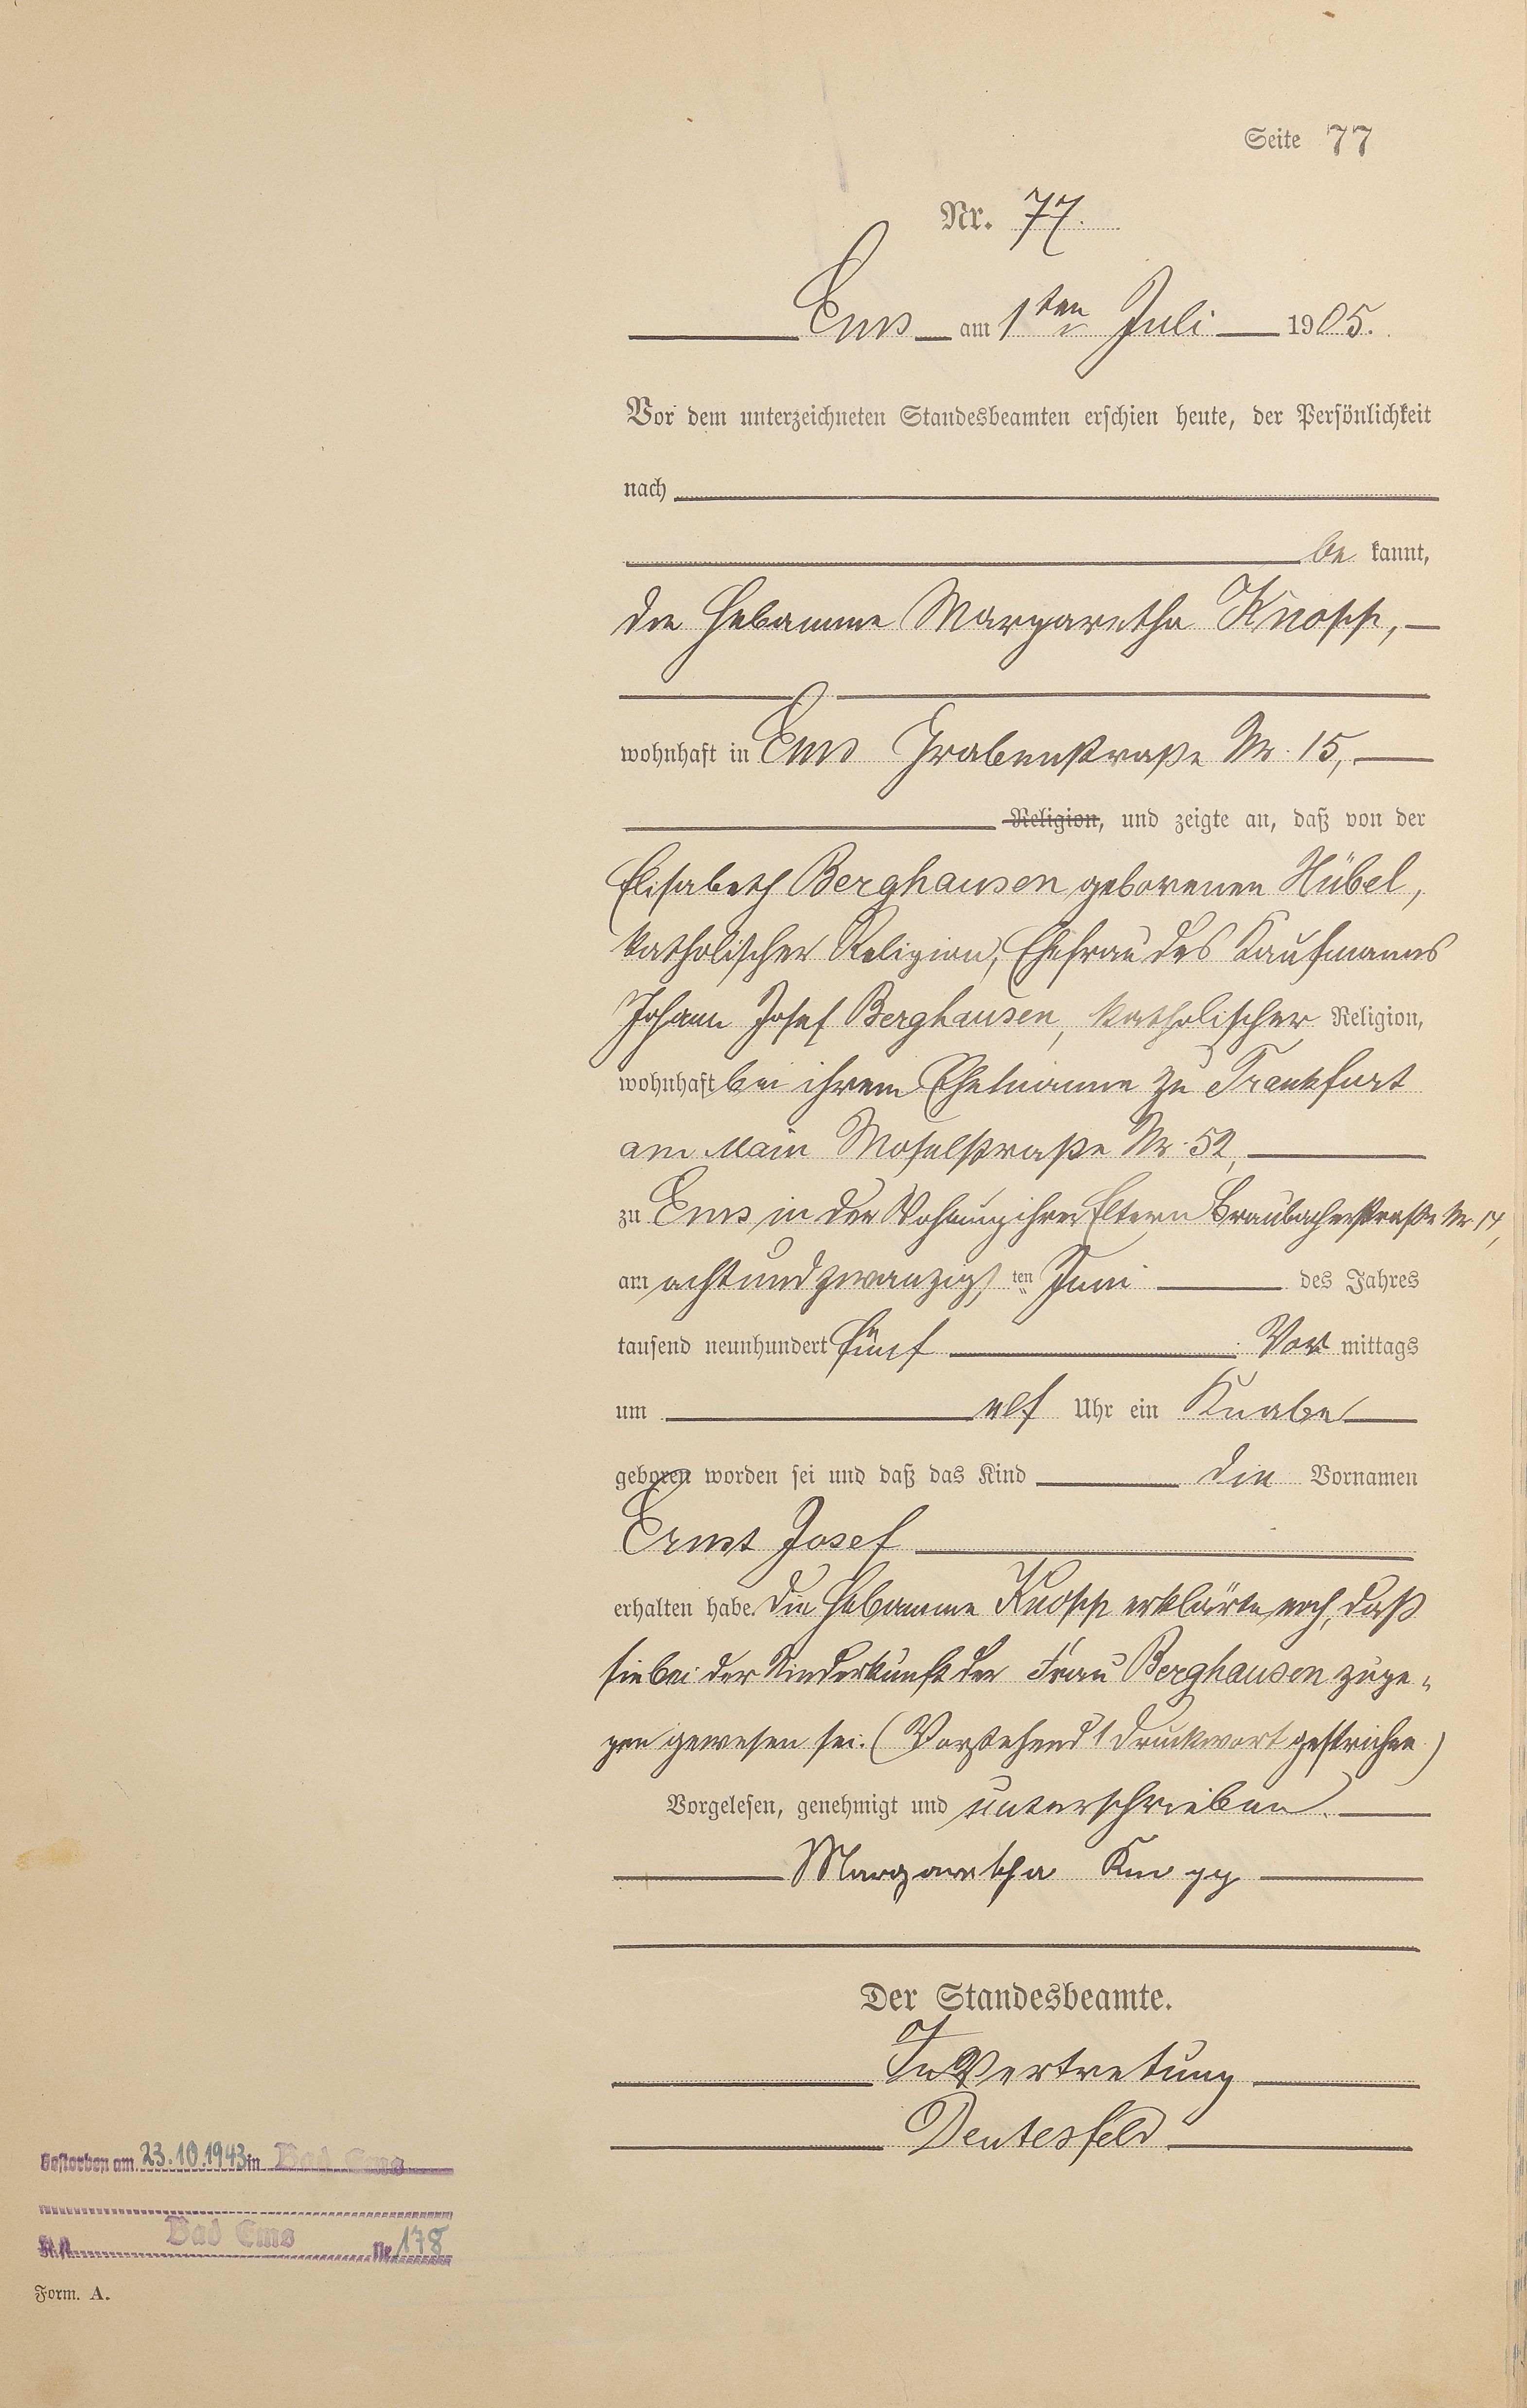 Seite 77
Nr. 77.
Ems am 1ten Juli 1905.
Vor dem unterzeichneten Standesbeamten erschien heute, der Persönlichkeit
nach
be kannt,
die Hebamme Margaretha Knopp,
wohnhaft in Ems Grabenstraße Nr. 15,
Religion, und zeigte an, daß von der
Elisabeth Berghausen geborenen Hübel,
katholischer Religion, Ehefrau des Kaufmanns
Johann Josef Berghausen, katholischer Religion,
wohnhaft bei ihrem Ehemanne zu Frankfurt
am Main Moselstraße Nr. 52,
zu Ems in der Wohnung ihrer Eltern Braubacherstraße Nr.
am achtundzwanzigsten Juni des Jahres
tausend neunhundert fünf Vor mittags
um elf Uhr ein Knabe
geboren worden sei und daß das Kind die Vornamen
Ernst Josef
erhalten habe. Die Hebamme Knopp erklärte noch, daß
sie bei der Niederkunft der Frau Berghausen zuge-
gen gewesen sei. (Vorstehend 1 Druckwort gestrichen)
Vorgelesen, genehmigt und unterschrieben.
Margaretha Knopp
Der Standesbeamte.
In Vertretung
Deutesfeld
Gestorben am 23.10.1943 in Bad Ems
St.A. Bad Ems Nr. 178
Form. A.